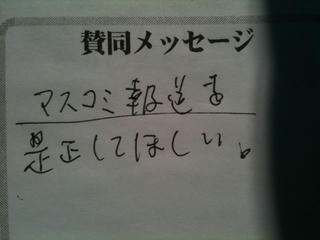 賛同メッセージ
マスコミ報道を
是正してほしい。